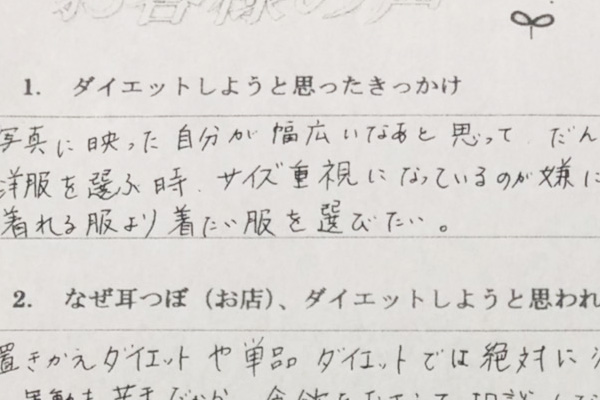 お客様の声
1. ダイエットしようと思ったきっかけ
写真に映った自分が幅広いなあと思って だん
洋服を選ぶ時、サイズ重視になっているのが嫌に
着れる服より着たい服を選びたい。
2. なぜ耳つぼ（お店）、ダイエットしようと思われ
置きかえダイエットや単品ダイエットでは絶対に
運動も苦手だから